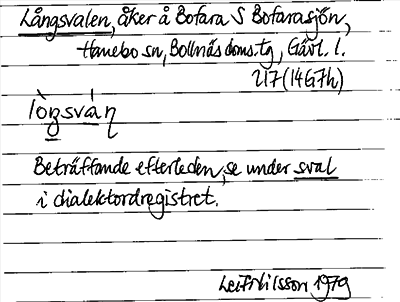 Långsvalen, åker å Bofara S Bofarasjön,
Hanebo sn, Bollnäs doms.tg, Gävl. l.
217 (14G7h)
lòŋsván
Beträffande efterleden, se under sval
i dialektordregistret.
Leif Nilsson 1979